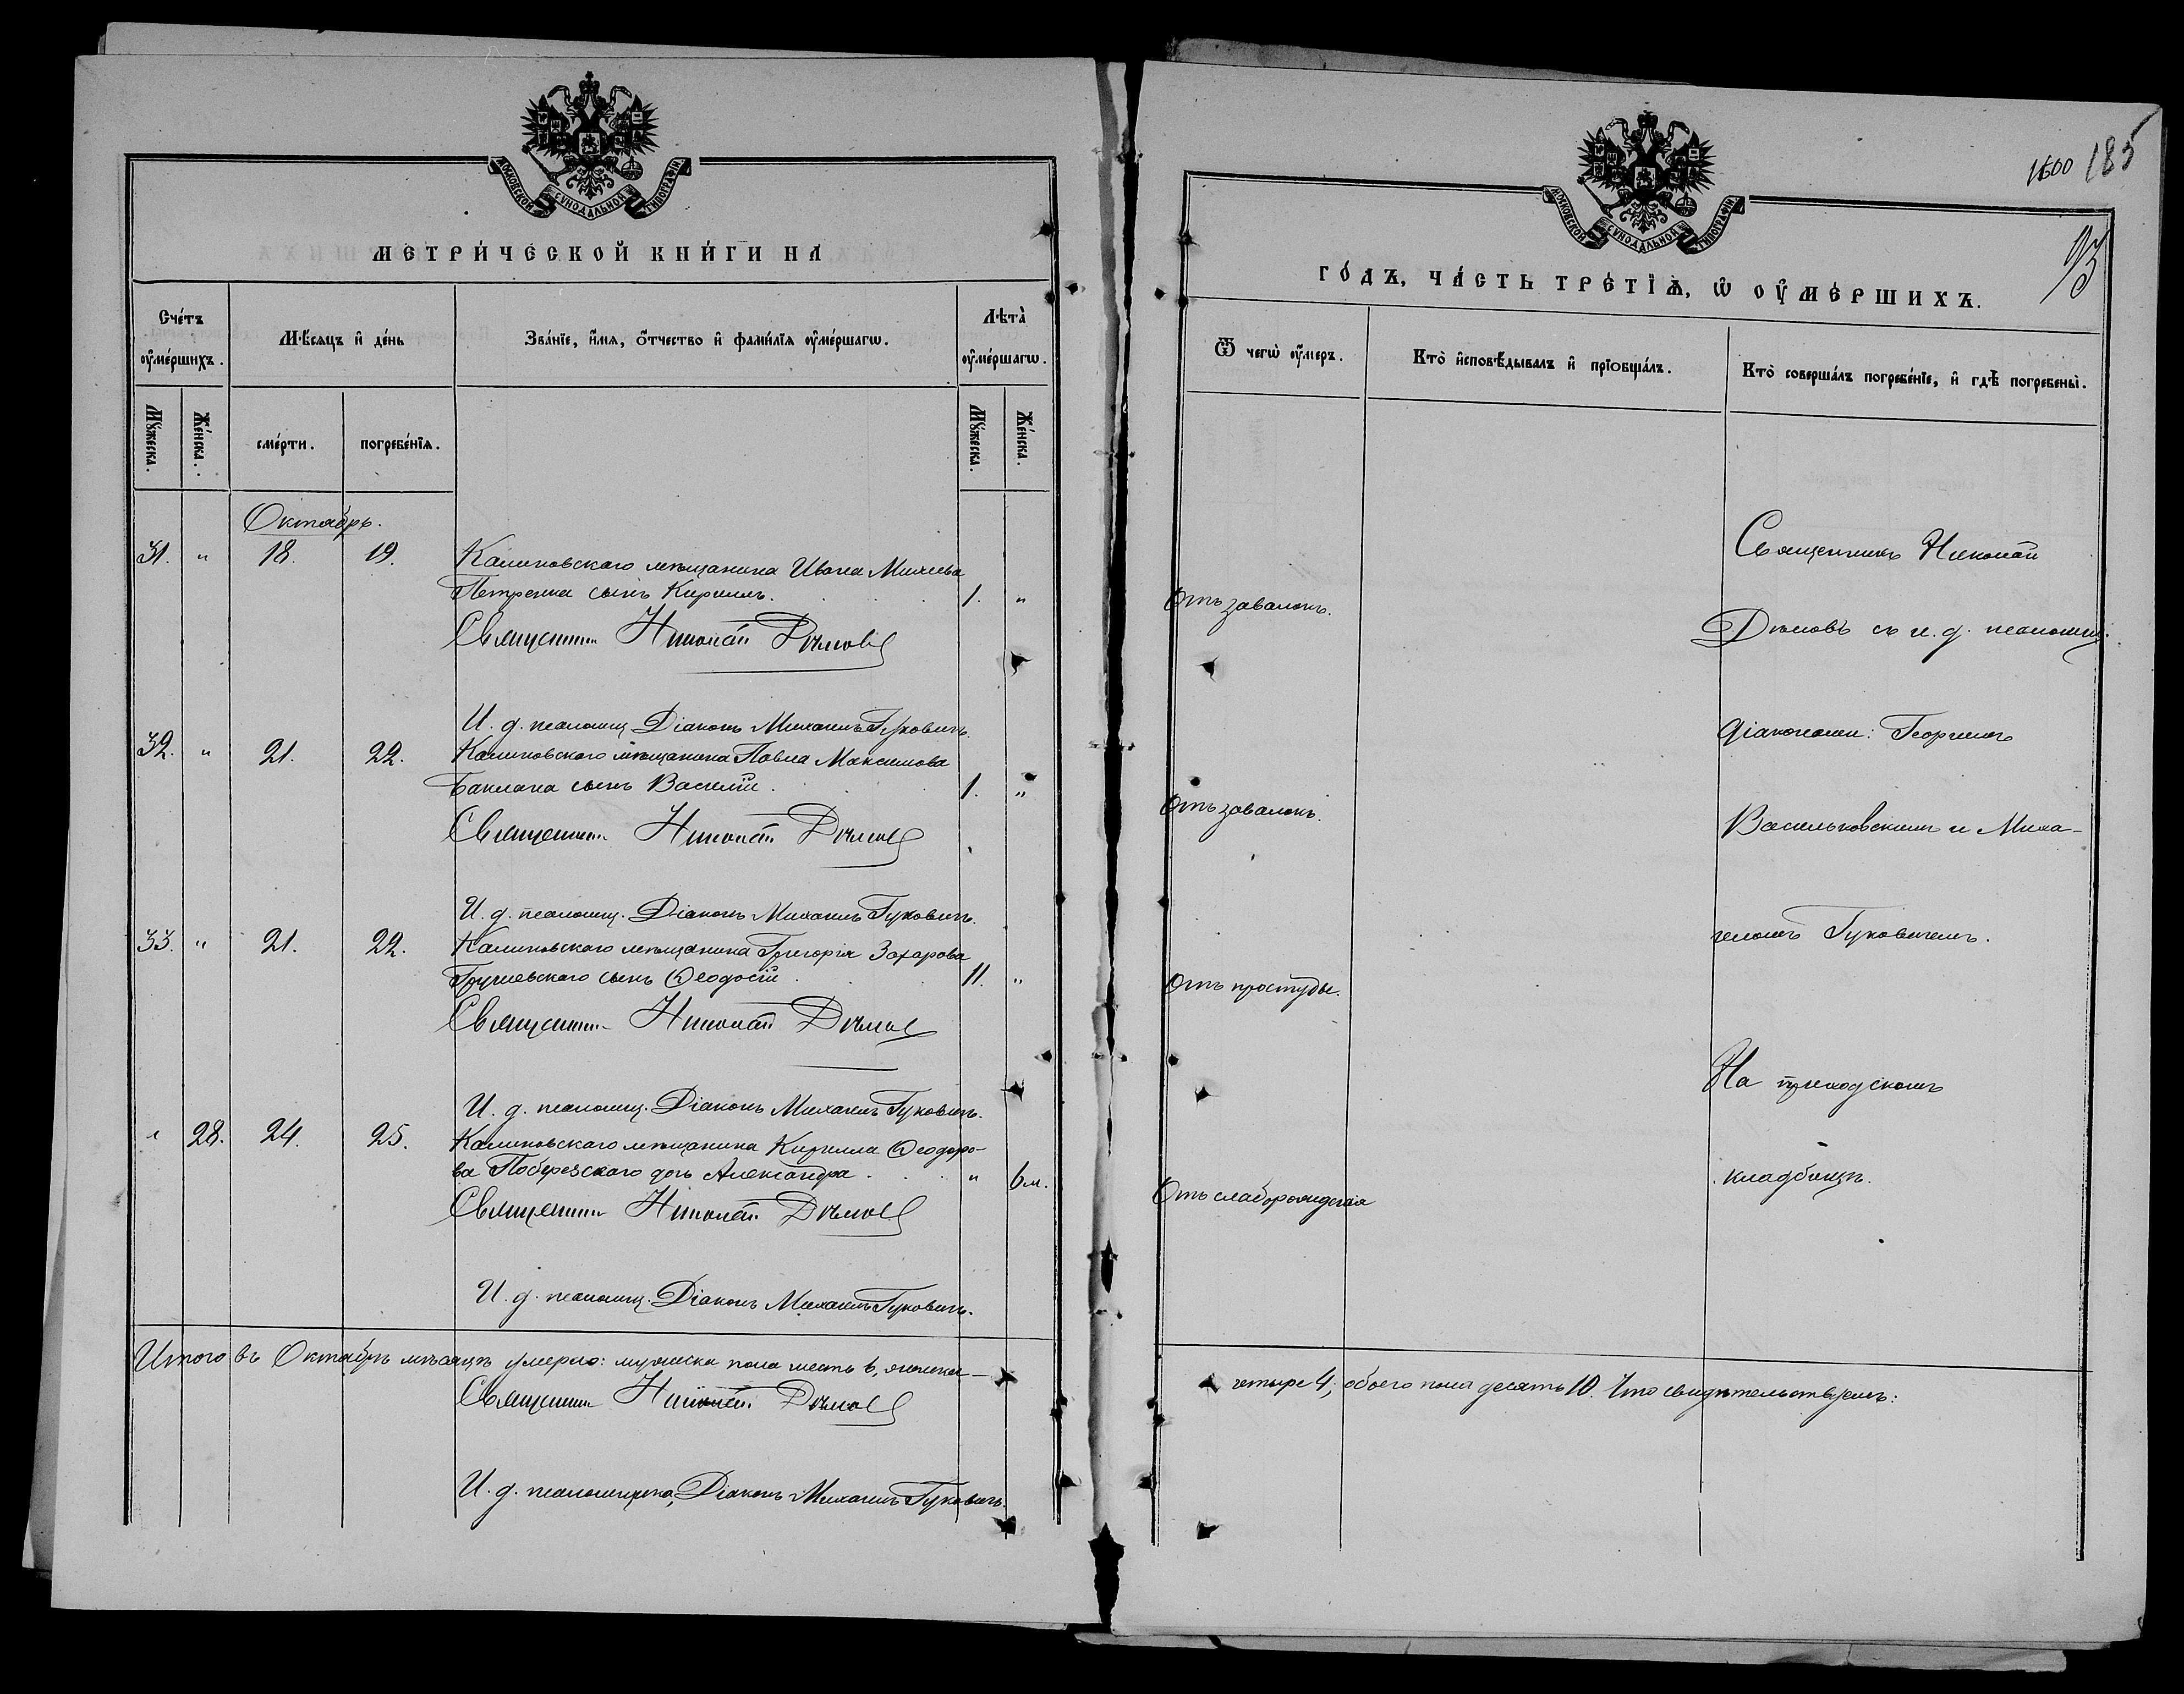 МОСКОВСКОЙ СѴНОДАЛЬНОЙ ТИПОГРАФІИ
МЕТРИ́ЧЕСКОЙ КНИ́ГИ НА
Сче́тъ оу҆ме́ршихъ.
Мѣ́сяцъ и҆ де́нь
Зва́нїе, и҆́мѧ, ѻ҆́тчество и҆ фами́лїѧ оу҆ме́ршагѡ.
Лѣ́та оу҆ме́ршагѡ.
Мꙋ́жеска.
Же́нска.
сме́рти.
погребе́нїѧ.
Мꙋ́жеска.
Же́нска.
Октябрь.
31. „ 18. 19. Калиновскаго мѣщанина Ивана Михеева
Петренка сынъ Кириллъ. 1. „
Священникъ Николай Дѣмовъ
И. д. псаломщ. Діаконъ Михаилъ Гуковичъ.
32. „ 21. 22. Калиновскаго мѣщанина Павла Максимова
Баклана сынъ Василій. 1. „
Священникъ Николай Дѣмовъ
И. д. псаломщ. Діаконъ Михаилъ Гуковичъ.
33. „ 21. 22. Калиновскаго мѣщанина Григорія Захарова
сынъ Ѳеодосій. 11. „
Священникъ Николай Дѣмовъ
И. д. псаломщ. Діаконъ Михаилъ Гуковичъ.
„ 28. 24. 25. Калиновскаго мѣщанина Кирилла Ѳеодоро-
ва Поберезскаго дочь Александра. „ 6 м.
Священникъ Николай Дѣмовъ
И. д. псаломщ. Діаконъ Михаилъ Гуковичъ.
Итого въ Октябрѣ мѣсяцѣ умерло: мужеска пола шесть 6, женска—
Священникъ Николай Дѣмовъ
И. д. псаломщика, Діаконъ Михаилъ Гуковичъ.
185
93
МОСКОВСКОЙ СѴНОДАЛЬНОЙ ТИПОГРАФІИ
ГО́ДЪ, ЧА́СТЬ ТРЕ́ТЇѦ, Ѡ҆ ОУ҆МЕ́РШИХЪ.
Ѿ чегѡ̀ оу҆́меръ.
Кто̀ и҆сповѣ́дывалъ и҆ прїобща́лъ.
Кто̀ соверша́лъ погребе́нїе, и҆ гдѣ̀ погребены̀.
Священникъ Николай
Отъ завалокъ.
Дѣмовъ съ и. д. псаломщ.
діаконами: Георгіемъ
Отъ завалокъ.
Васильковскимъ и Миха-
иломъ Гуковичемъ.
Отъ простуды.
На приходскомъ
кладбищѣ.
Отъ слаборожденія
четыре 4, обоего пола десять 10. Что свидѣтельствуемъ: